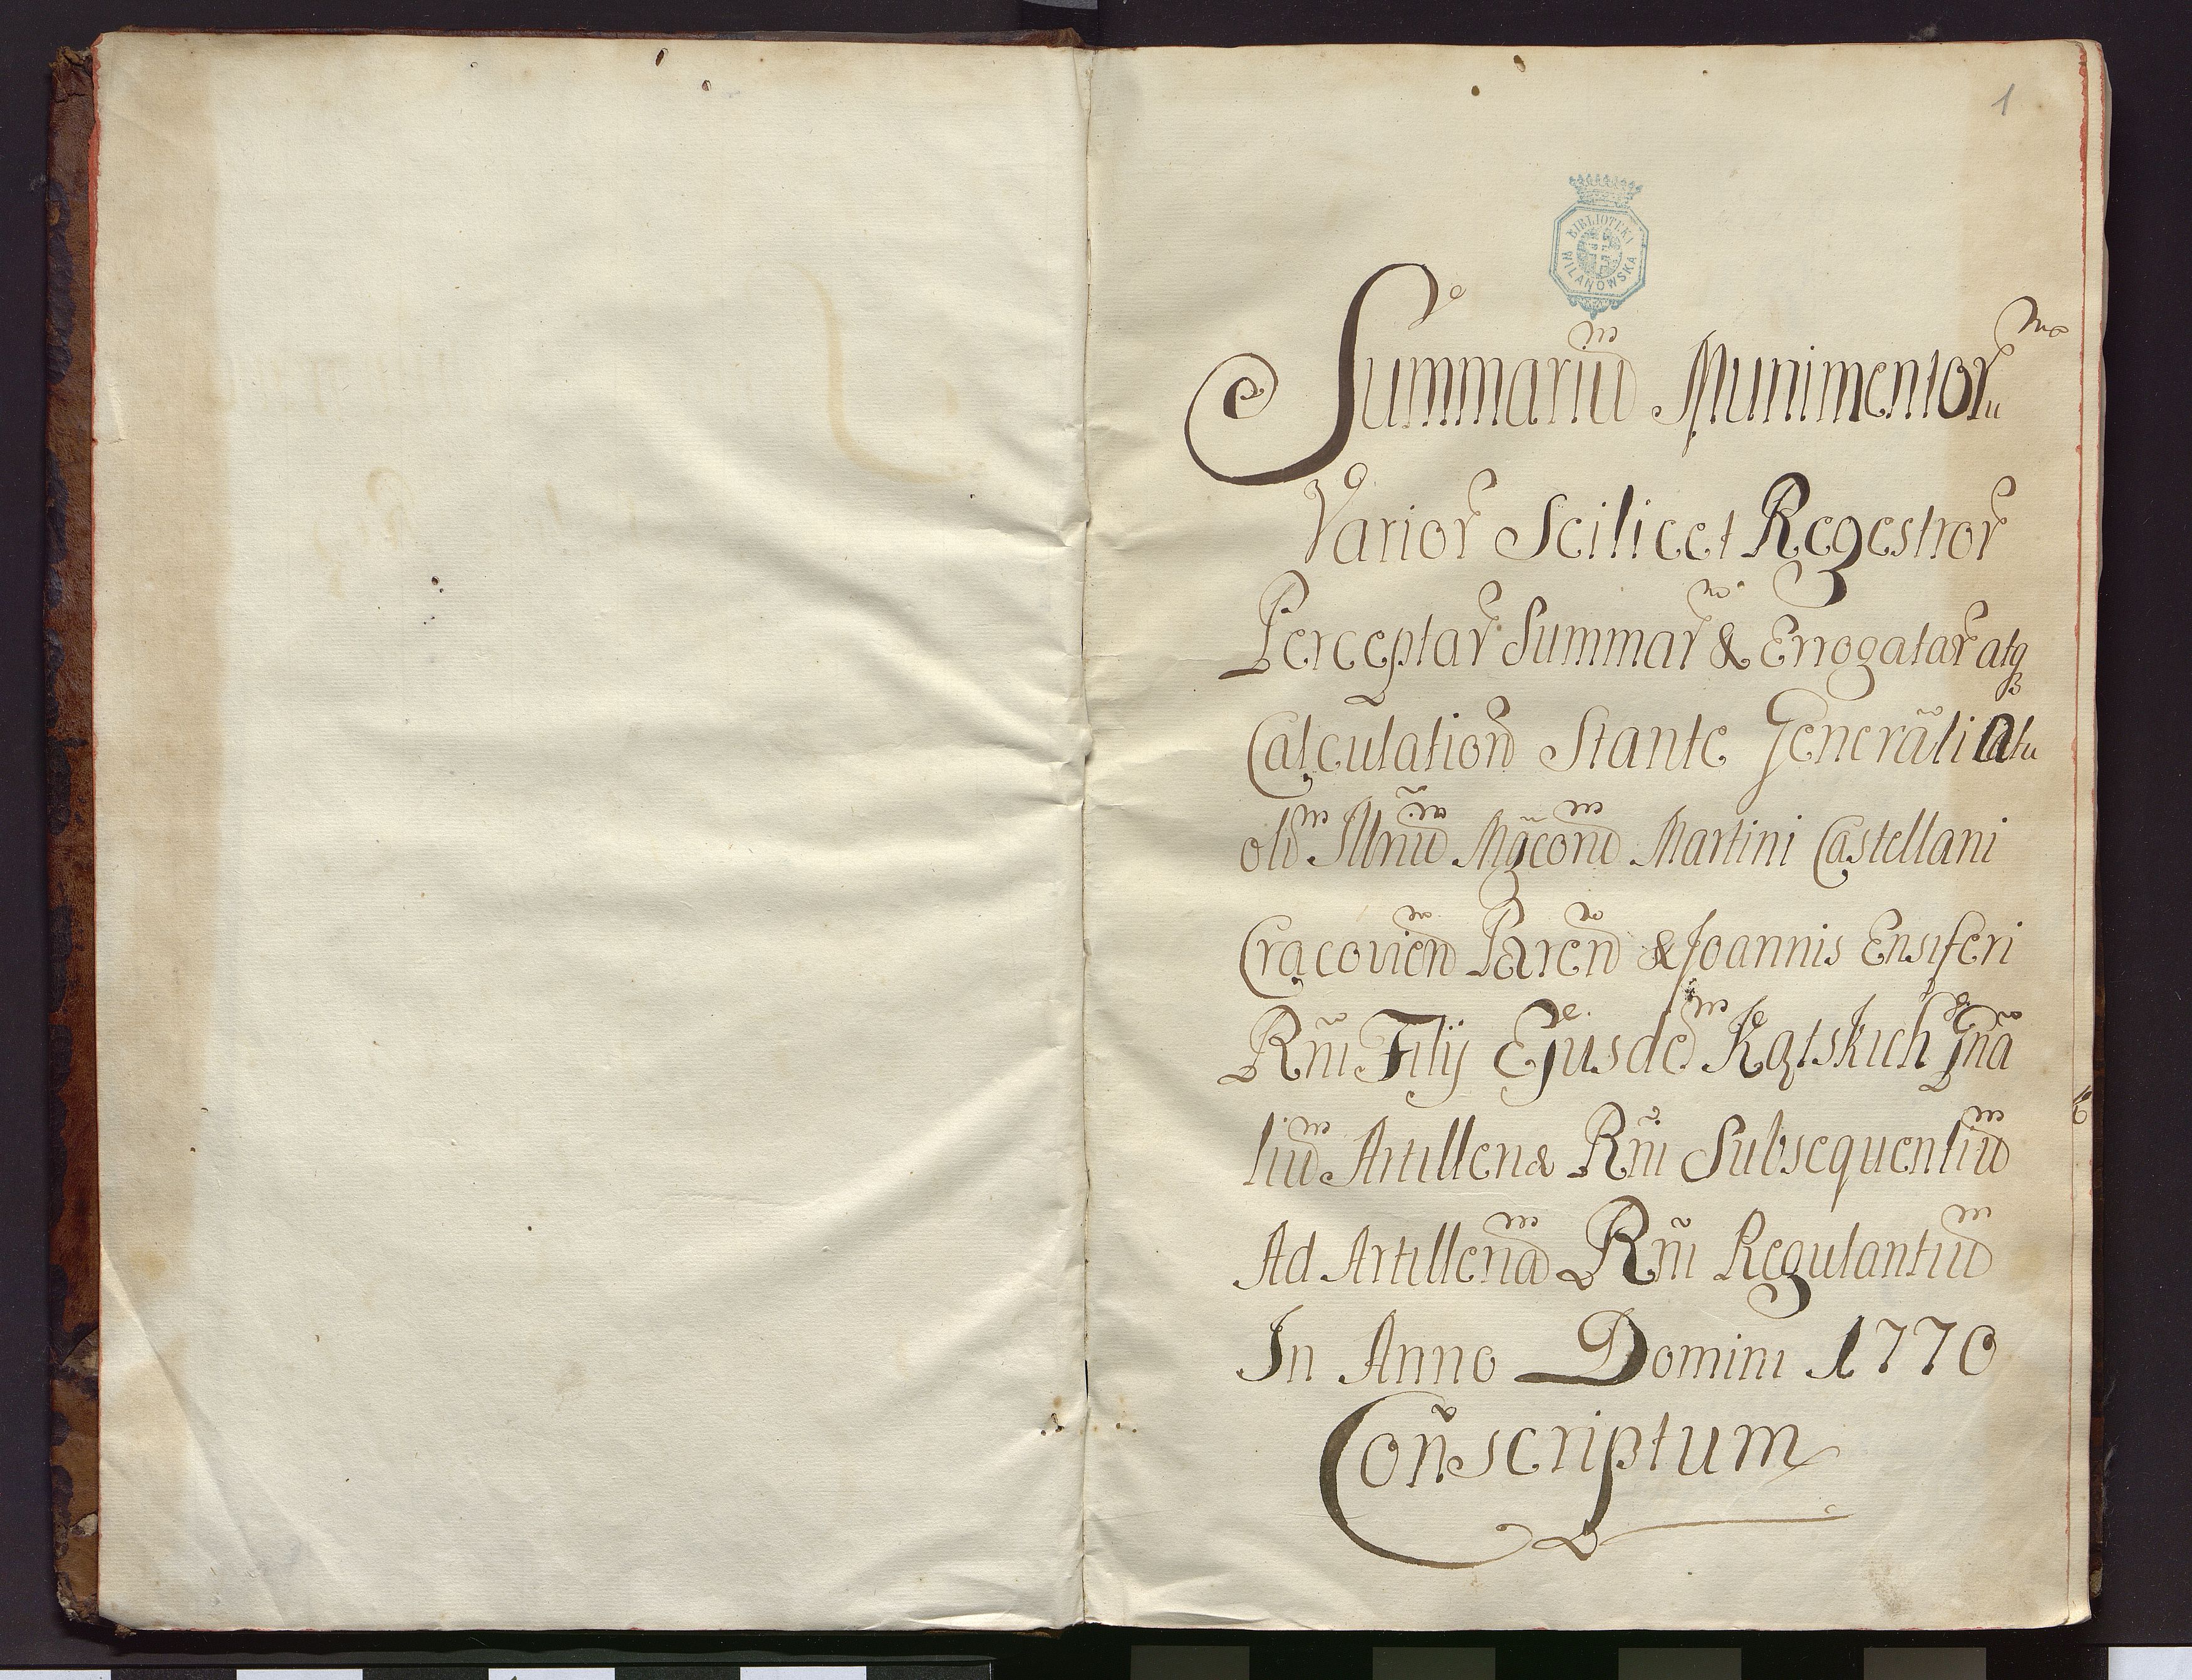 1
BIBLIOTEKA
WILANOWSKA
Summariu͂ Munimentoru
Varior Scilicet Regestror
Perceptar Summar & Errogatar atq
Calculation Stante Generãliatu
oli͂ Illñu͂ Mgcõru͂ Martini Castellani
Cracovien Paren & Joannis Ensiferi
Rñi Filij Ejusde͂ Kątskich Gñã
liu͂ Artilleriæ Rñi Subsequentiu͂
Ad Artilleria͂ Rñi Regulantiu͂
In Anno Domini 1770
Coñscriptum